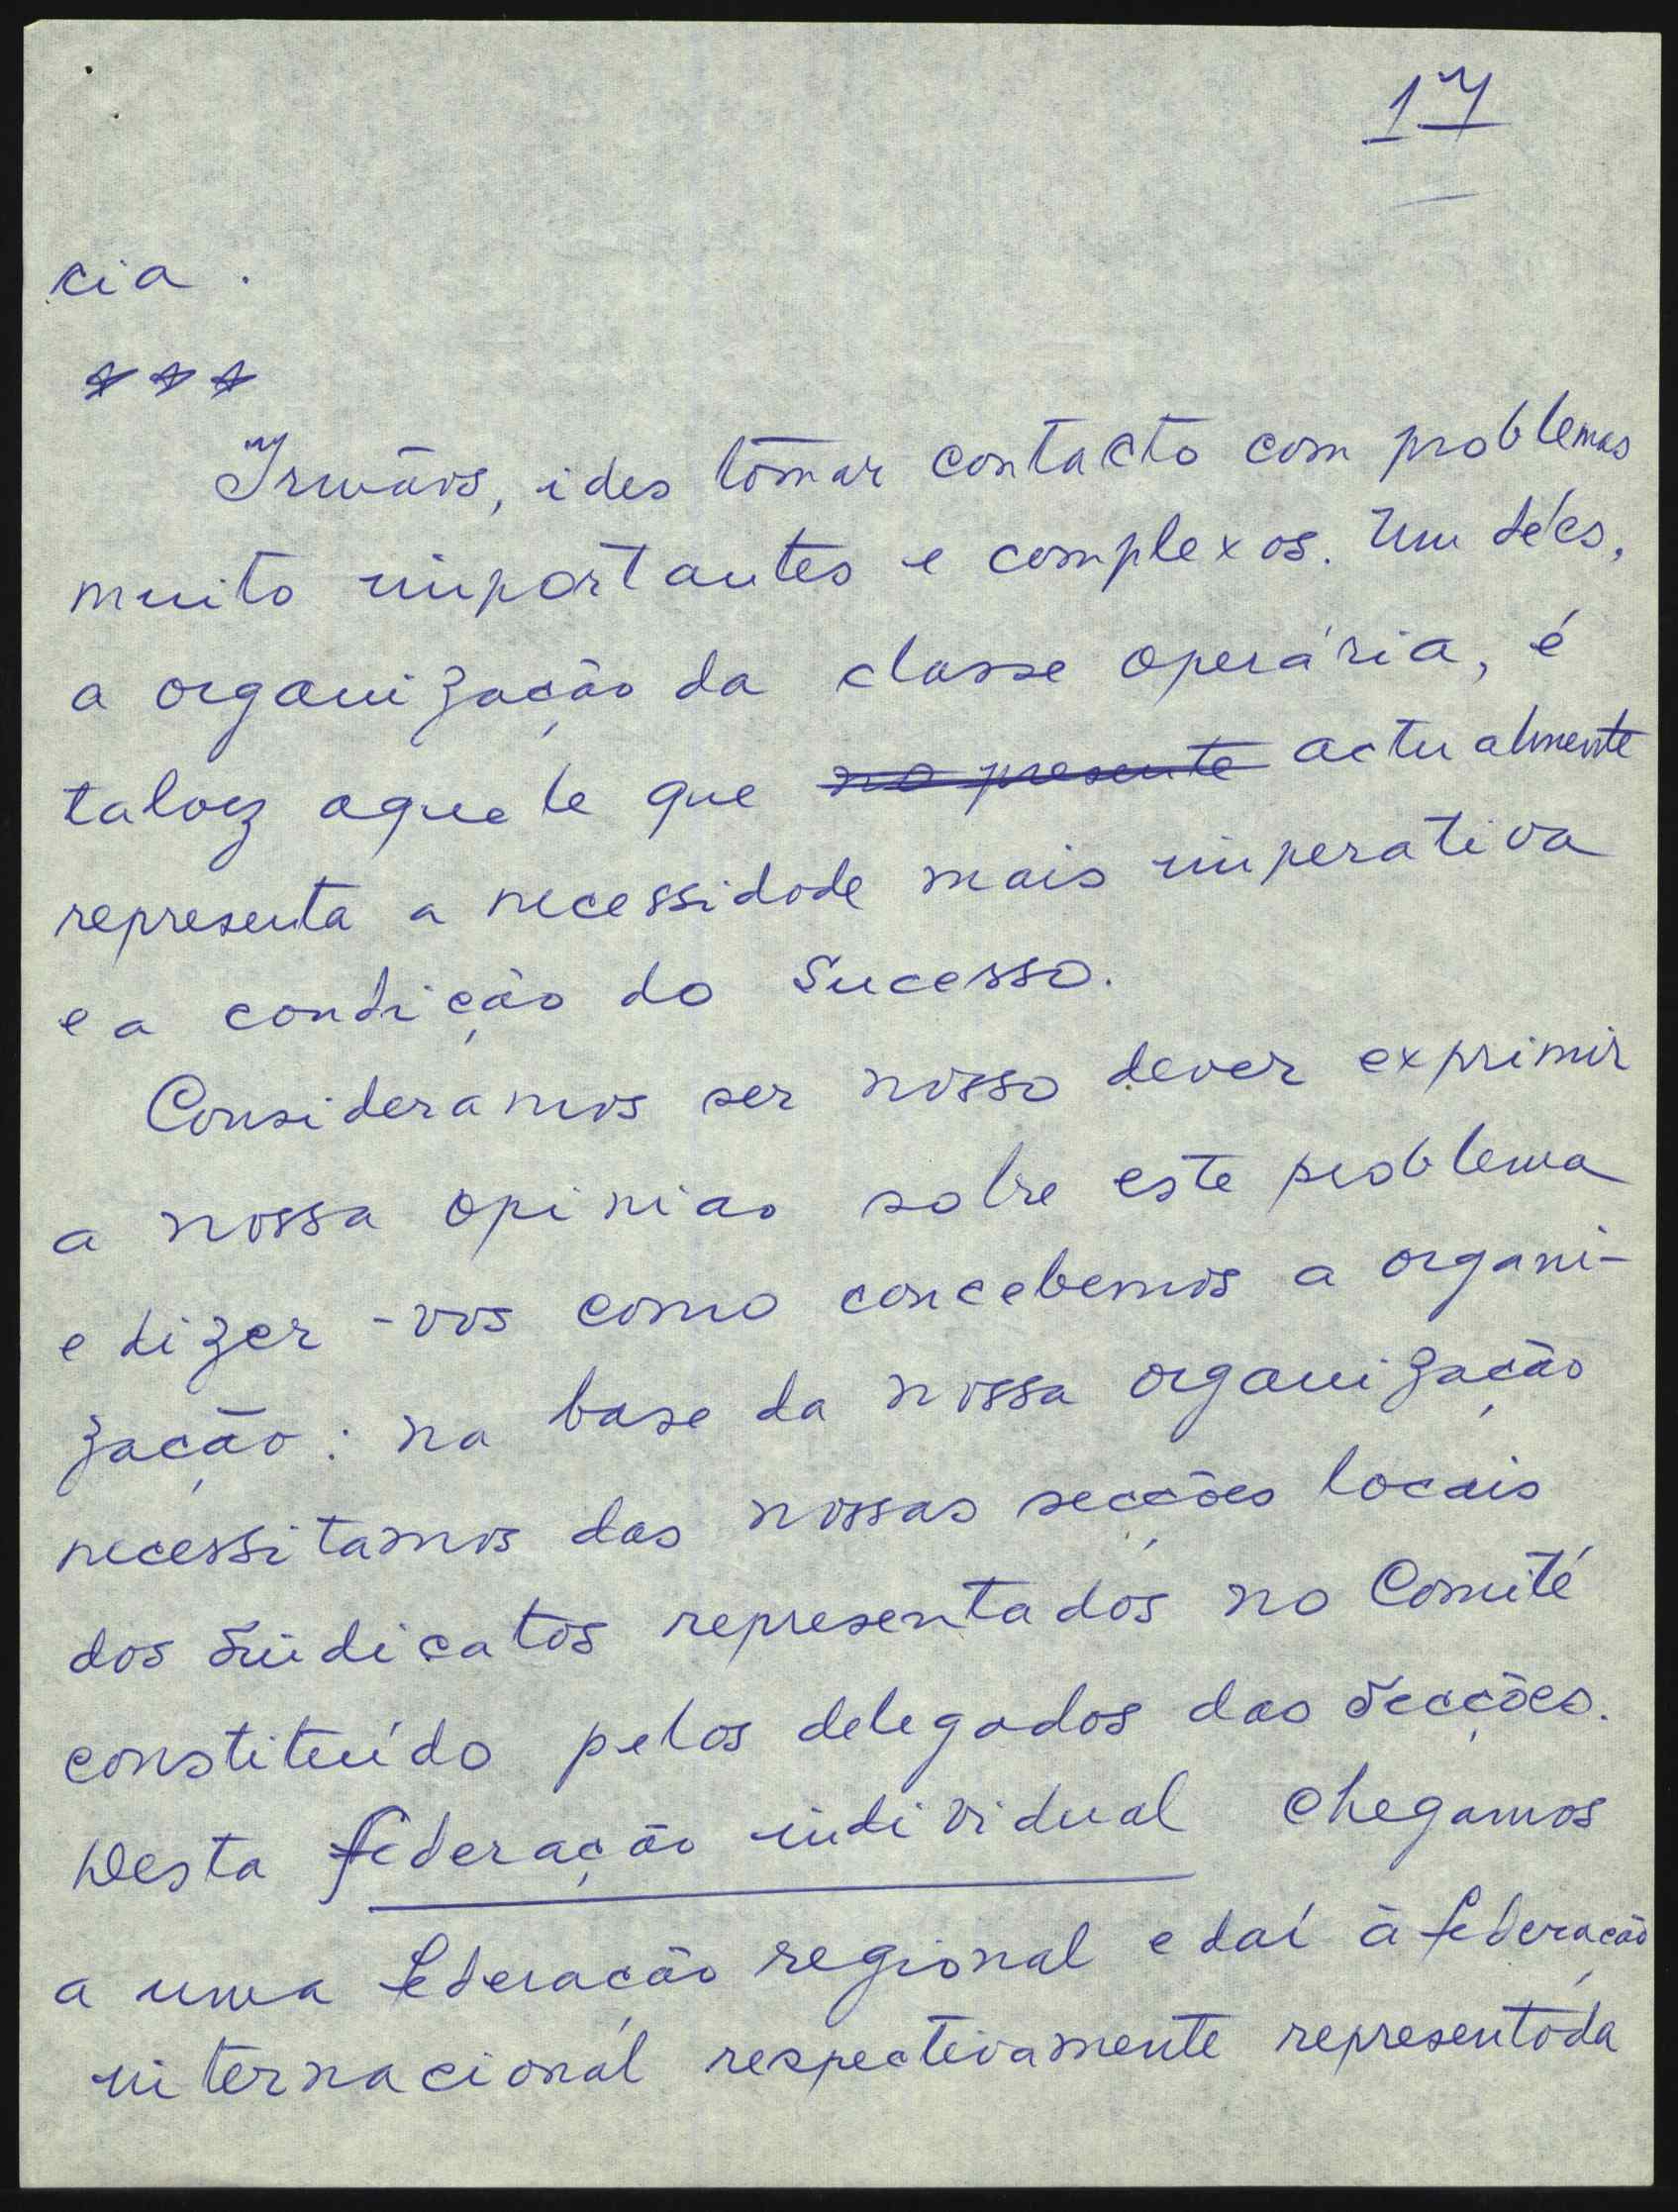 17
cia.
***
Irmãos, ides tomar contacto com problemas
muito importantes e complexos. Um déles,
a organização da classe operária, é
talvez aquele que no presente actualmente
representa a necessidade mais imperativa
e a condição do Sucesso.
Consideramos ser nosso dever exprimir
a nossa opinião sobre este problema
e dizer-vos como concebemos a organi-
zação: na base da nossa organização
necessitamos das nossas secções locais
dos Sindicatos representados no Comité
constituído pelos delegados das Secções.
Desta federação individual chegamos
a uma federação regional e daí à federação
internacional respectivamente representada